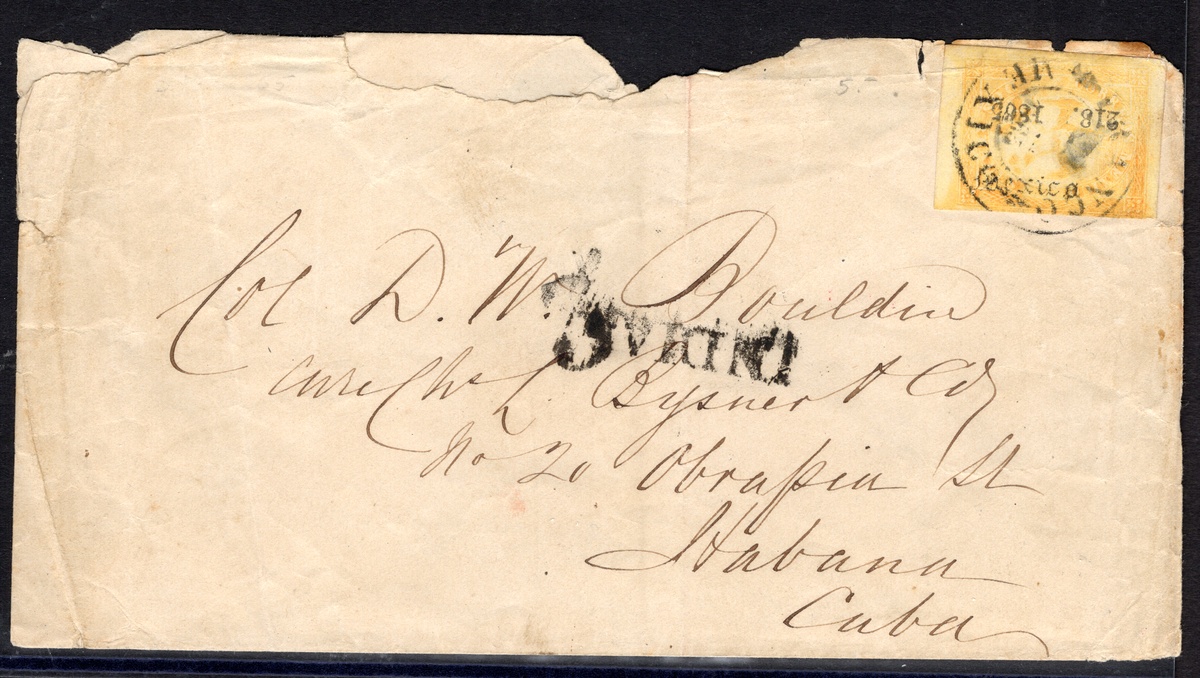 5.
218. 1865
Mexico
Col D. W. Bouldin
care Chs L. Bysner & Co
No 20 Obrapia St
Habana
Cuba